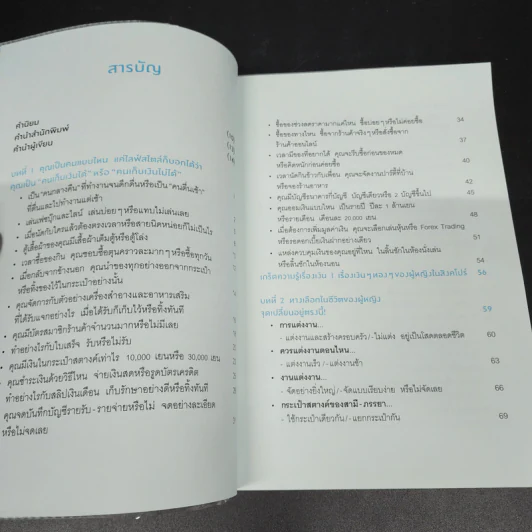 สารบัญ
คำนิยม
คำนำสำนักพิมพ์
คำนำผู้เขียน
บทที่ 1 คุณเป็นคนแบบไหน แค่ไลฟ์สไตล์ก็บอกได้ว่า
คุณเป็น "คนเก็บเงินได้" หรือ "คนเก็บเงินไม่ได้"
• เป็น "คนกลางคืน" ที่ทำงานจนดึกดื่นหรือเป็น "คนตื่นเช้า"
ที่ตื่นและไปทำงานแต่เช้า
• เล่นเฟซบุ๊กและไลน์ เล่นบ่อยๆ หรือแทบไม่เล่นเลย
• เวลานัดกับใครแล้วต้องตรงเวลาหรือสายนิดหน่อยก็ไม่เป็นไร
• ตู้เสื้อผ้าของคุณมีเสื้อผ้าเต็มตู้หรือตู้โล่ง
• เวลาซื้อของกิน คุณชอบซื้อตุนคราวละมากๆ หรือซื้อทุกวัน
• เมื่อกลับจากข้างนอก คุณนำของทุกอย่างออกจากกระเป๋า
หรือทิ้งของไว้ในกระเป๋าอย่างนั้น
• คุณจัดการกับตัวอย่างเครื่องสำอางและอาหารเสริม
ที่ได้รับแจกอย่างไร เมื่อได้รับก็เก็บไว้หรือทิ้งทันที
• คุณมีบัตรสมาชิกร้านค้าจำนวนมากหรือไม่มีเลย
• ทำอย่างไรกับใบเสร็จ รับหรือไม่รับ
• คุณมีเงินในกระเป๋าสตางค์เท่าไร 10,000 เยนหรือ 30,000 เยน
• คุณชำระเงินด้วยวิธีไหน จ่ายเงินสดหรือรูดบัตรเครดิต
ทำอย่างไรกับสลิปเงินเดือน เก็บรักษาอย่างดีหรือทิ้งทันที
คุณจดบันทึกบัญชีรายรับ-รายจ่ายหรือไม่ จดอย่างละเอียด
หรือไม่จดเลย
• ซื้อของช่วงลดราคามากแค่ไหน ซื้อบ่อยๆ หรือไม่ค่อยซื้อ 34
• ซื้อของทางไหน ซื้อจากร้านค้าจริงๆ หรือสั่งซื้อจาก
ร้านค้าออนไลน์ 37
• เวลามีของที่อยากได้ คุณจะรีบซื้อก่อนของหมด
หรือคิดหนักก่อนค่อยซื้อ 40
• เวลานัดกินข้าวกับเพื่อน คุณจะจัดงานปาร์ตี้ที่บ้าน
หรือจองร้านอาหาร 42
• คุณมีบัญชีธนาคารกี่บัญชี บัญชีเดียวหรือ 2 บัญชีขึ้นไป 45
• คุณออมเงินแบบไหน เป็นรายปี ปีละ 1 ล้านเยน
หรือรายเดือน เดือนละ 20,000 เยน 48
• เมื่อต้องการเพิ่มมูลค่าเงิน คุณจะเลือกเล่นหุ้นหรือ Forex Trading
หรือรอดอกเบี้ยเงินฝากอย่างเดียว 51
• แหล่งควบคุมเงินของคุณอยู่ที่ไหน ในลิ้นชักในห้องนั่งเล่น
หรือลิ้นชักในห้องนอน 54
เกร็ดความรู้เรื่องเงิน 1 เรื่องเงินๆ ทองๆ ของผู้หญิงในสิงคโปร์ 56
บทที่ 2 ทางเลือกในชีวิตของผู้หญิง
จุดเปลี่ยนอยู่ตรงนี้! 59
• การแต่งงาน...
- แต่งงานและสร้างครอบครัว/-ไม่แต่ง อยู่เป็นโสดตลอดชีวิต 60
• ควรแต่งงานตอนไหน...
- แต่งงานเร็ว/-แต่งงานช้า 63
• งานแต่งงาน...
- จัดอย่างยิ่งใหญ่/-จัดแบบเรียบง่าย หรือไม่จัดเลย 66
• กระเป๋าสตางค์ของสามี-ภรรยา...
- ใช้กระเป๋าเดียวกัน/-แยกกระเป๋ากัน 69